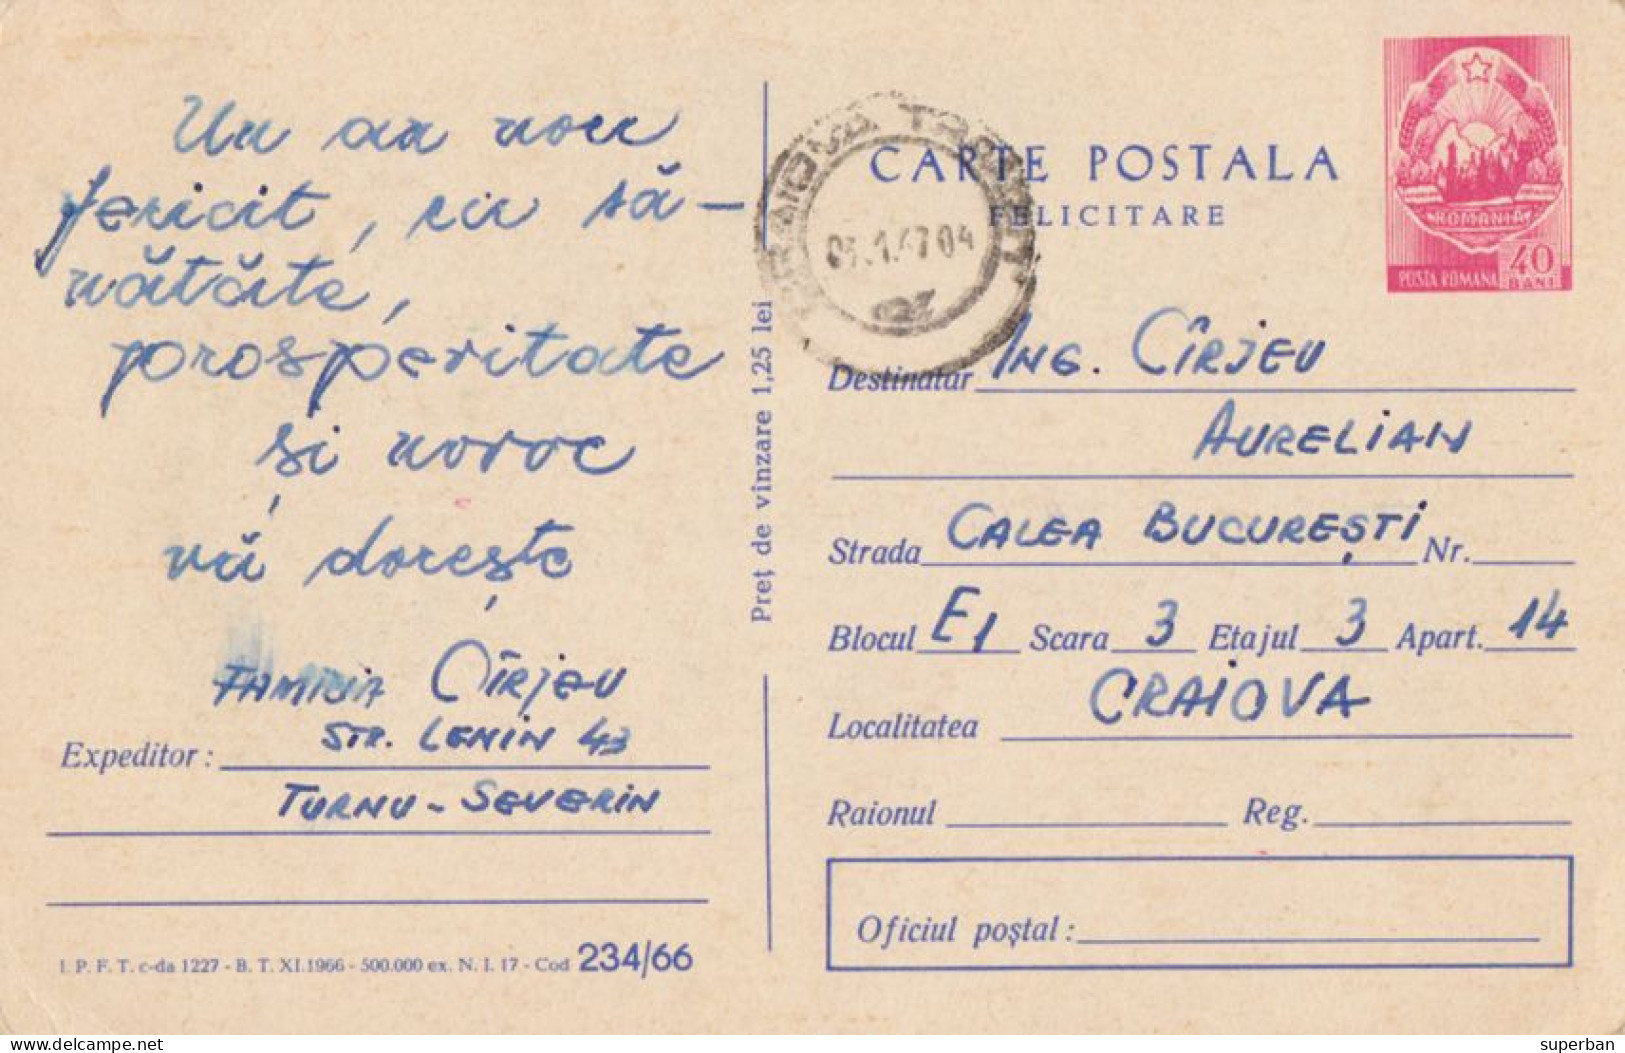 Un an nou
fericit, cu să-
nătate,
prosperitate
și noroc
vă dorește
FAMILIA CÎRJEU
Expeditor: STR. LENIN 43
TURNU-SEVERIN
I. P. F. T. c-da 1227 - B. T. XI.1966 - 500.000 ex. N. I. 17 - Cod 234/66
Preț de vînzare 1,25 lei
CRAIOVA TRANZIT
CARTE POSTALA
FELICITARE
ROMANIA
POSTA ROMANA 40 BANI
Destinatar ING. CÎRJEU
AURELIAN
Strada CALEA BUCUREȘTI Nr.
Blocul E1 Scara 3 Etajul 3 Apart. 14
Localitatea CRAIOVA
Raionul Reg.
Oficiul poștal:
delcampe.net
superban